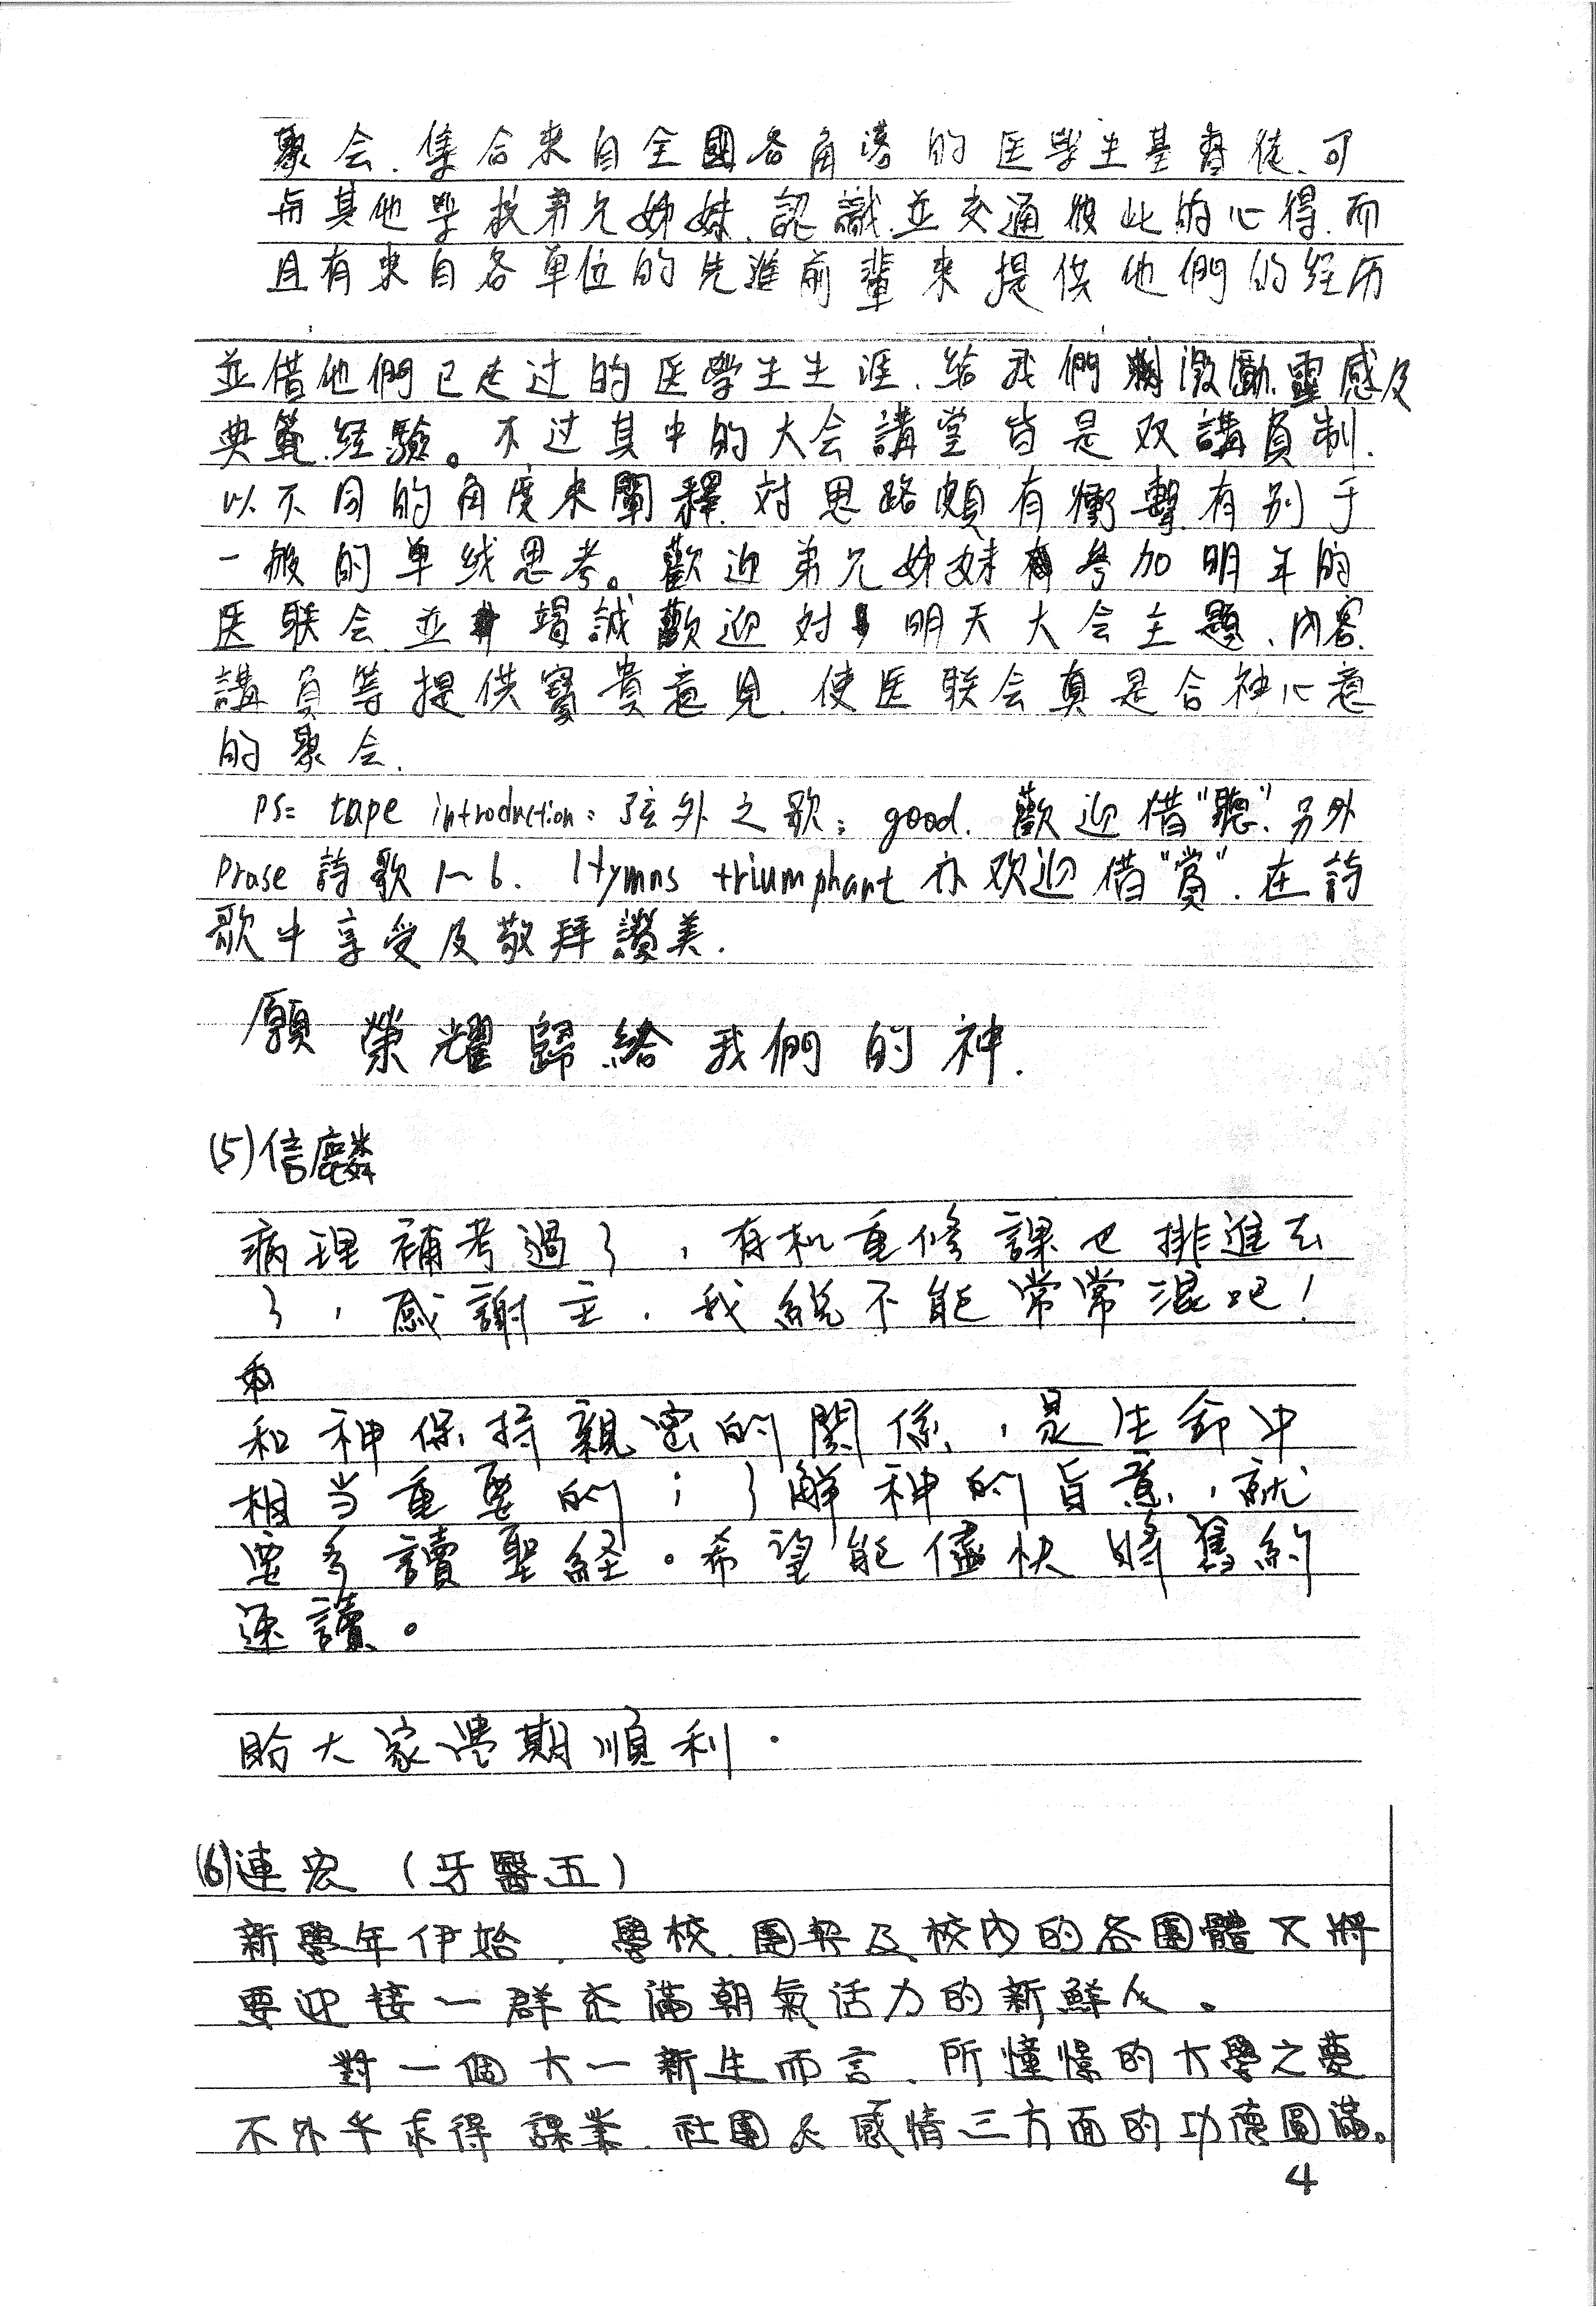 聚会、集合來自全國各角落的医學生基督徒、可
与其他学校弟兄姊妹、認識並交通彼此的心得、而
且有來自各單位的先進前輩來提供他們的経历
並借他們已走过的医學生生涯、給我們激勵、靈感及
典範、経驗。不过其中的大会講堂皆是双講員制、
以不同的角度來闡釋、対思路頗有衝擊、有別于
一般的单线思考。歡迎弟兄姊妹參加明年的
医联会、並竭誠歡迎対明天大会主題、內容、
講員等提供寶貴意見、使医联会真是合神心意
的聚会.
PS= tape introduction：弦外之歌：good. 歡迎借"聽"、另外
Prase 詩歌 1~6. Hymns triumphant 亦欢迎借"賞". 在詩
歌中享受及敬拜讚美.
願榮耀歸給我們的神.
(5)信麟
病理補考過了，有机重修課也排進去
了，感謝主，我総不能常常混吧！
和神保持親密的関係，是生命中
相当重要的；了解神的旨意，就
要多讀聖経。希望能儘快將舊約
速讀。
盼大家學期順利．
(6)連宏（牙醫五）
新學年伊始、學校、團契及校內的各團體又將
要迎接一群充滿朝氣活力的新鮮人。
對一個大一新生而言、所憧憬的大學之夢
不外乎求得課業、社團及感情三方面的功德圓滿。
4